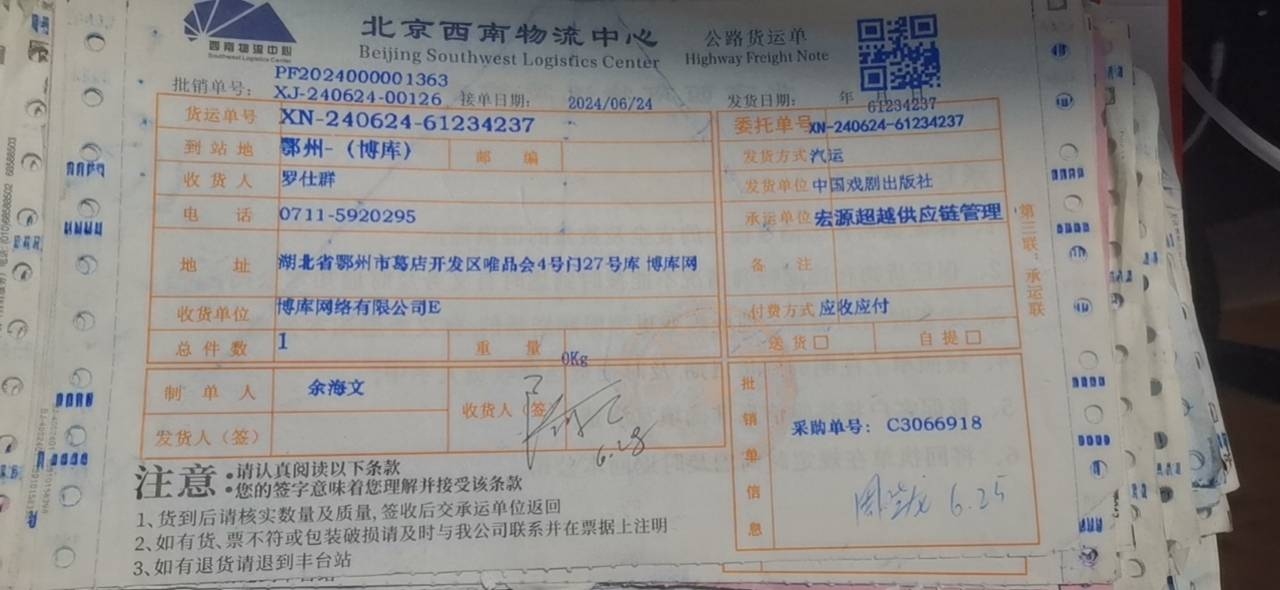 西南物流中心
Southwest Logistics Center
北京西南物流中心
Beijing Southwest Logistics Center
公路货运单
Highway Freight Note
批销单号: PF2024000001363
XJ-240624-00126 接单日期: 2024/06/24 发货日期: 年 月 日
61234237
货运单号 XN-240624-61234237 委托单号 XN-240624-61234237
到站地 鄂州-（博库） 邮编 发货方式 汽运
收货人 罗仕群 发货单位 中国戏剧出版社
电话 0711-5920295 承运单位 宏源超越供应链管理
地址 湖北省鄂州市葛店开发区唯品会4号门27号库 博库网 备注
收货单位 博库网络有限公司E 付费方式 应收应付
总件数 1 重量 0Kg 送货□ 自提□
制单人 余海文 收货人（签） 批销单信息 采购单号: C3066918
发货人（签） 6.28
6.25
第三联:承运联
注意:请认真阅读以下条款
您的签字意味着您理解并接受该条款
1、货到后请核实数量及质量,签收后交承运单位返回
2、如有货、票不符或包装破损请及时与我公司联系并在票据上注明
3、如有退货请退到丰台站